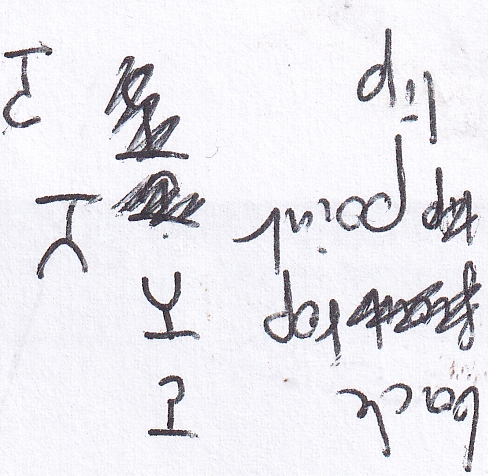 back
top
point
lip